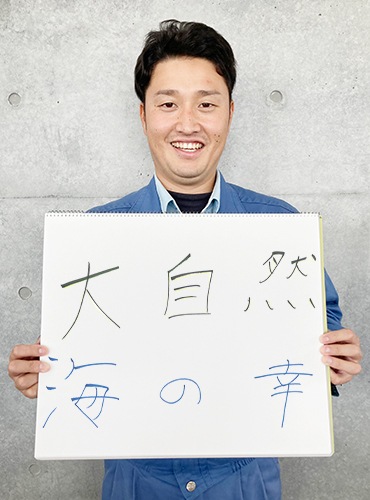 大自然
海の幸